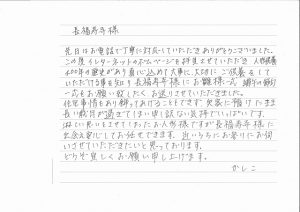 長福寿寺様
先日はお電話で丁寧に対応していただきありがとうございました。
この度インターネットのホームページを拝見させていただき 人形供養
400年の歴史があり真心込めて大事に、大切にご供養をして
いただける事を知り 長福寿寺様にお雛様一式
一式をお願い致したく お送りさせていただきました。
住宅事情もあり飾ってあげることもできず 実家に預けたまま
長い歳月が過ぎてしまい申し訳ない気持でいっぱいです。
淋しい思いをさせてしまったお人形様ですが長福寿寺様に
出会え安心してお任せできます。近いうちにお参りにお伺い
させていただきたいと思っております。
どうぞ宜しくお願い申し上げます。
かしこ